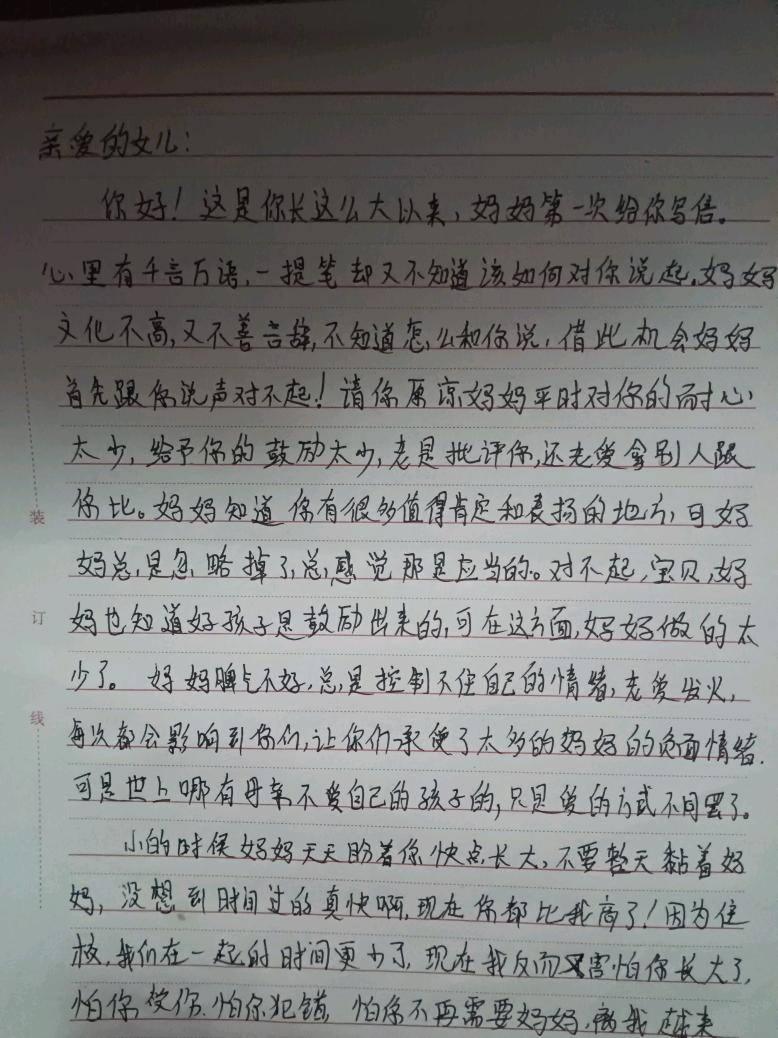 亲爱的女儿：
你好！这是你长这么大以来，妈妈第一次给你写信。
心里有千言万语，一提笔却又不知道该如何对你说起。妈妈
文化不高，又不善言辞，不知道怎么和你说，借此机会妈妈
首先跟你说声对不起！请你原谅妈妈平时对你的耐心
太少，给予你的鼓励太少，老是批评你，还老爱拿别人跟
你比。妈妈知道你有很多值得肯定和表扬的地方，可妈
妈总是忽略掉了，总感觉那是应当的。对不起，宝贝，妈
装
妈也知道好孩子是鼓励出来的，可在这方面，妈妈做的太
订
少了。妈妈脾气不好，总是控制不住自己的情绪，老爱发火，
线
每次都会影响到你们，让你们承受了太多的妈妈的负面情绪。
可是世上哪有母亲不爱自己的孩子的，只是爱的方式不同罢了。
小的时候妈妈天天盼着你快点长大，不要整天黏着妈
妈，没想到时间过的真快啊，现在你都比我高了！因为住
校，我们在一起的时间更少了，现在我反而害怕你长大了，
怕你受伤，怕你犯错，怕你不再需要妈妈，离我越来